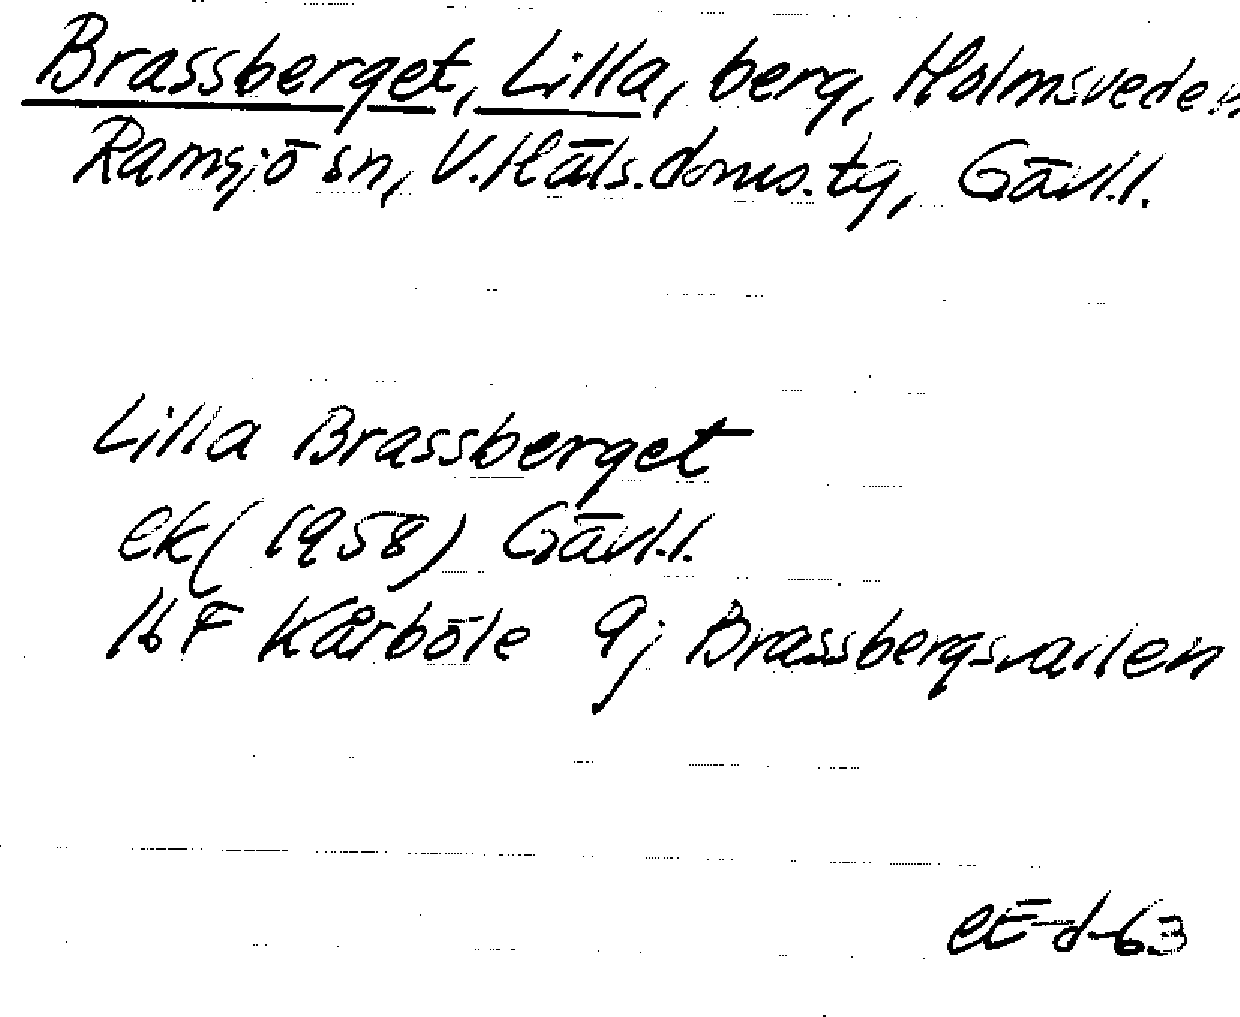 Brassberget, Lilla, berg, Holmsveden
Ramsjö sn, V. Häls. doms. tg, Gävl.l.
Lilla Brassberget
ek (1958) Gävl.l.
16 F Kårböle 9j Brassbergsvallen